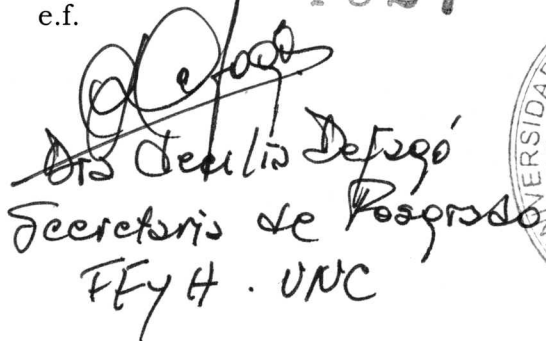 e.f.
Dra Cecilia Defagó
Secretaria de Posgrado
FFyH . UNC
VERSIDAD